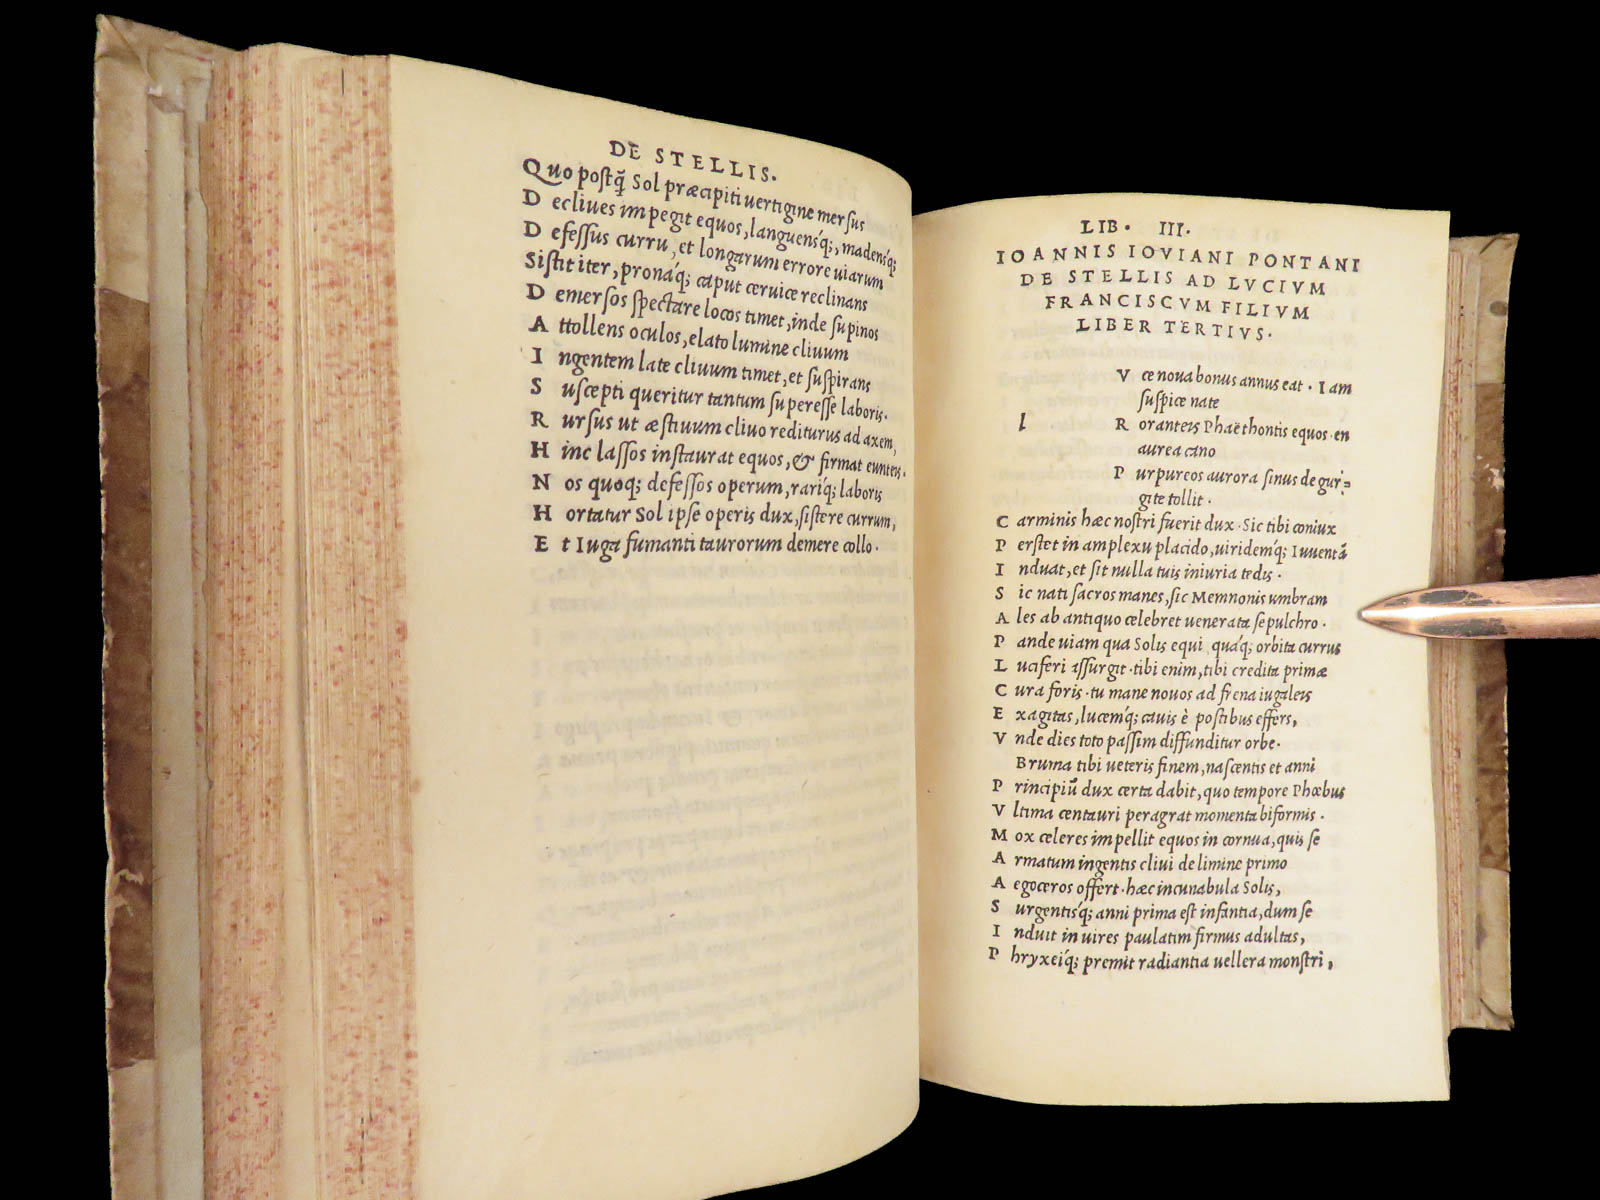 DE STELLIS.
Quo postq̃ Sol præcipiti uertigine mersus
D ecliues impegit equos, languensq;, madensq;
D efessus curru, et longarum errore uiarum
Sistit iter, pronáq; caput ceruice reclinans
D emersos spectare locos timet, inde supinos
A ttollens oculos, elato lumine cliuum
I ngentem late cliuum timet, et suspirans
S uscepti queritur tantum superesse laboris.
R ursus ut æstiuum cliuo rediturus ad axem,
H inc lassos instaurat equos, & firmat eunteis.
N os quoq; defessos operum, rariq́; laboris
H ortatur Sol ipse operis dux, sistere currum,
E t Iuga fumanti taurorum demere collo.
LIB. III.
IOANNIS IOVIANI PONTANI
DE STELLIS AD LVCIVM
FRANCISCVM FILIVM
LIBER TERTIVS.
V ce noua bonus annus eat. Iam
suspice nate
l
R oranteis Phaëthontis equos. en
aurea cano
P urpureos aurora sinus de gur=
gite tollit.
C arminis hæc nostri fuerit dux. Sic tibi coniux
P erstet in amplexu placido, uiridemq́; Iuuentā
I nduat, et sit nulla tuis iniuria tedis.
S ic nati sacros manes, sic Memnonis umbram
A les ab antiquo celebret uenerata sepulchro.
P ande uiam qua Solis equi, quáq; orbita currus
L uciferi assurgit. tibi enim, tibi credita primæ
C ura foris. tu mane nouos ad frena iugaleis
E xagitas, lucemq́; cauis è postibus effers,
V nde dies toto passim diffunditur orbe.
Bruma tibi ueteris finem, nascentis et anni
P rincipiū dux certa dabit, quo tempore Phœbus
V ltima centauri peragrat momenta biformis.
M ox celeres impellit equos in cornua, quis se
A rmatum ingentis cliui de limine primo
A egoceros offert. hæc incunabula Solis,
S urgentisq́; anni prima est infantia, dum se
I nduit in uires paulatim firmus adultas,
P hryxeiq́; premit radiantia uellera monstri,